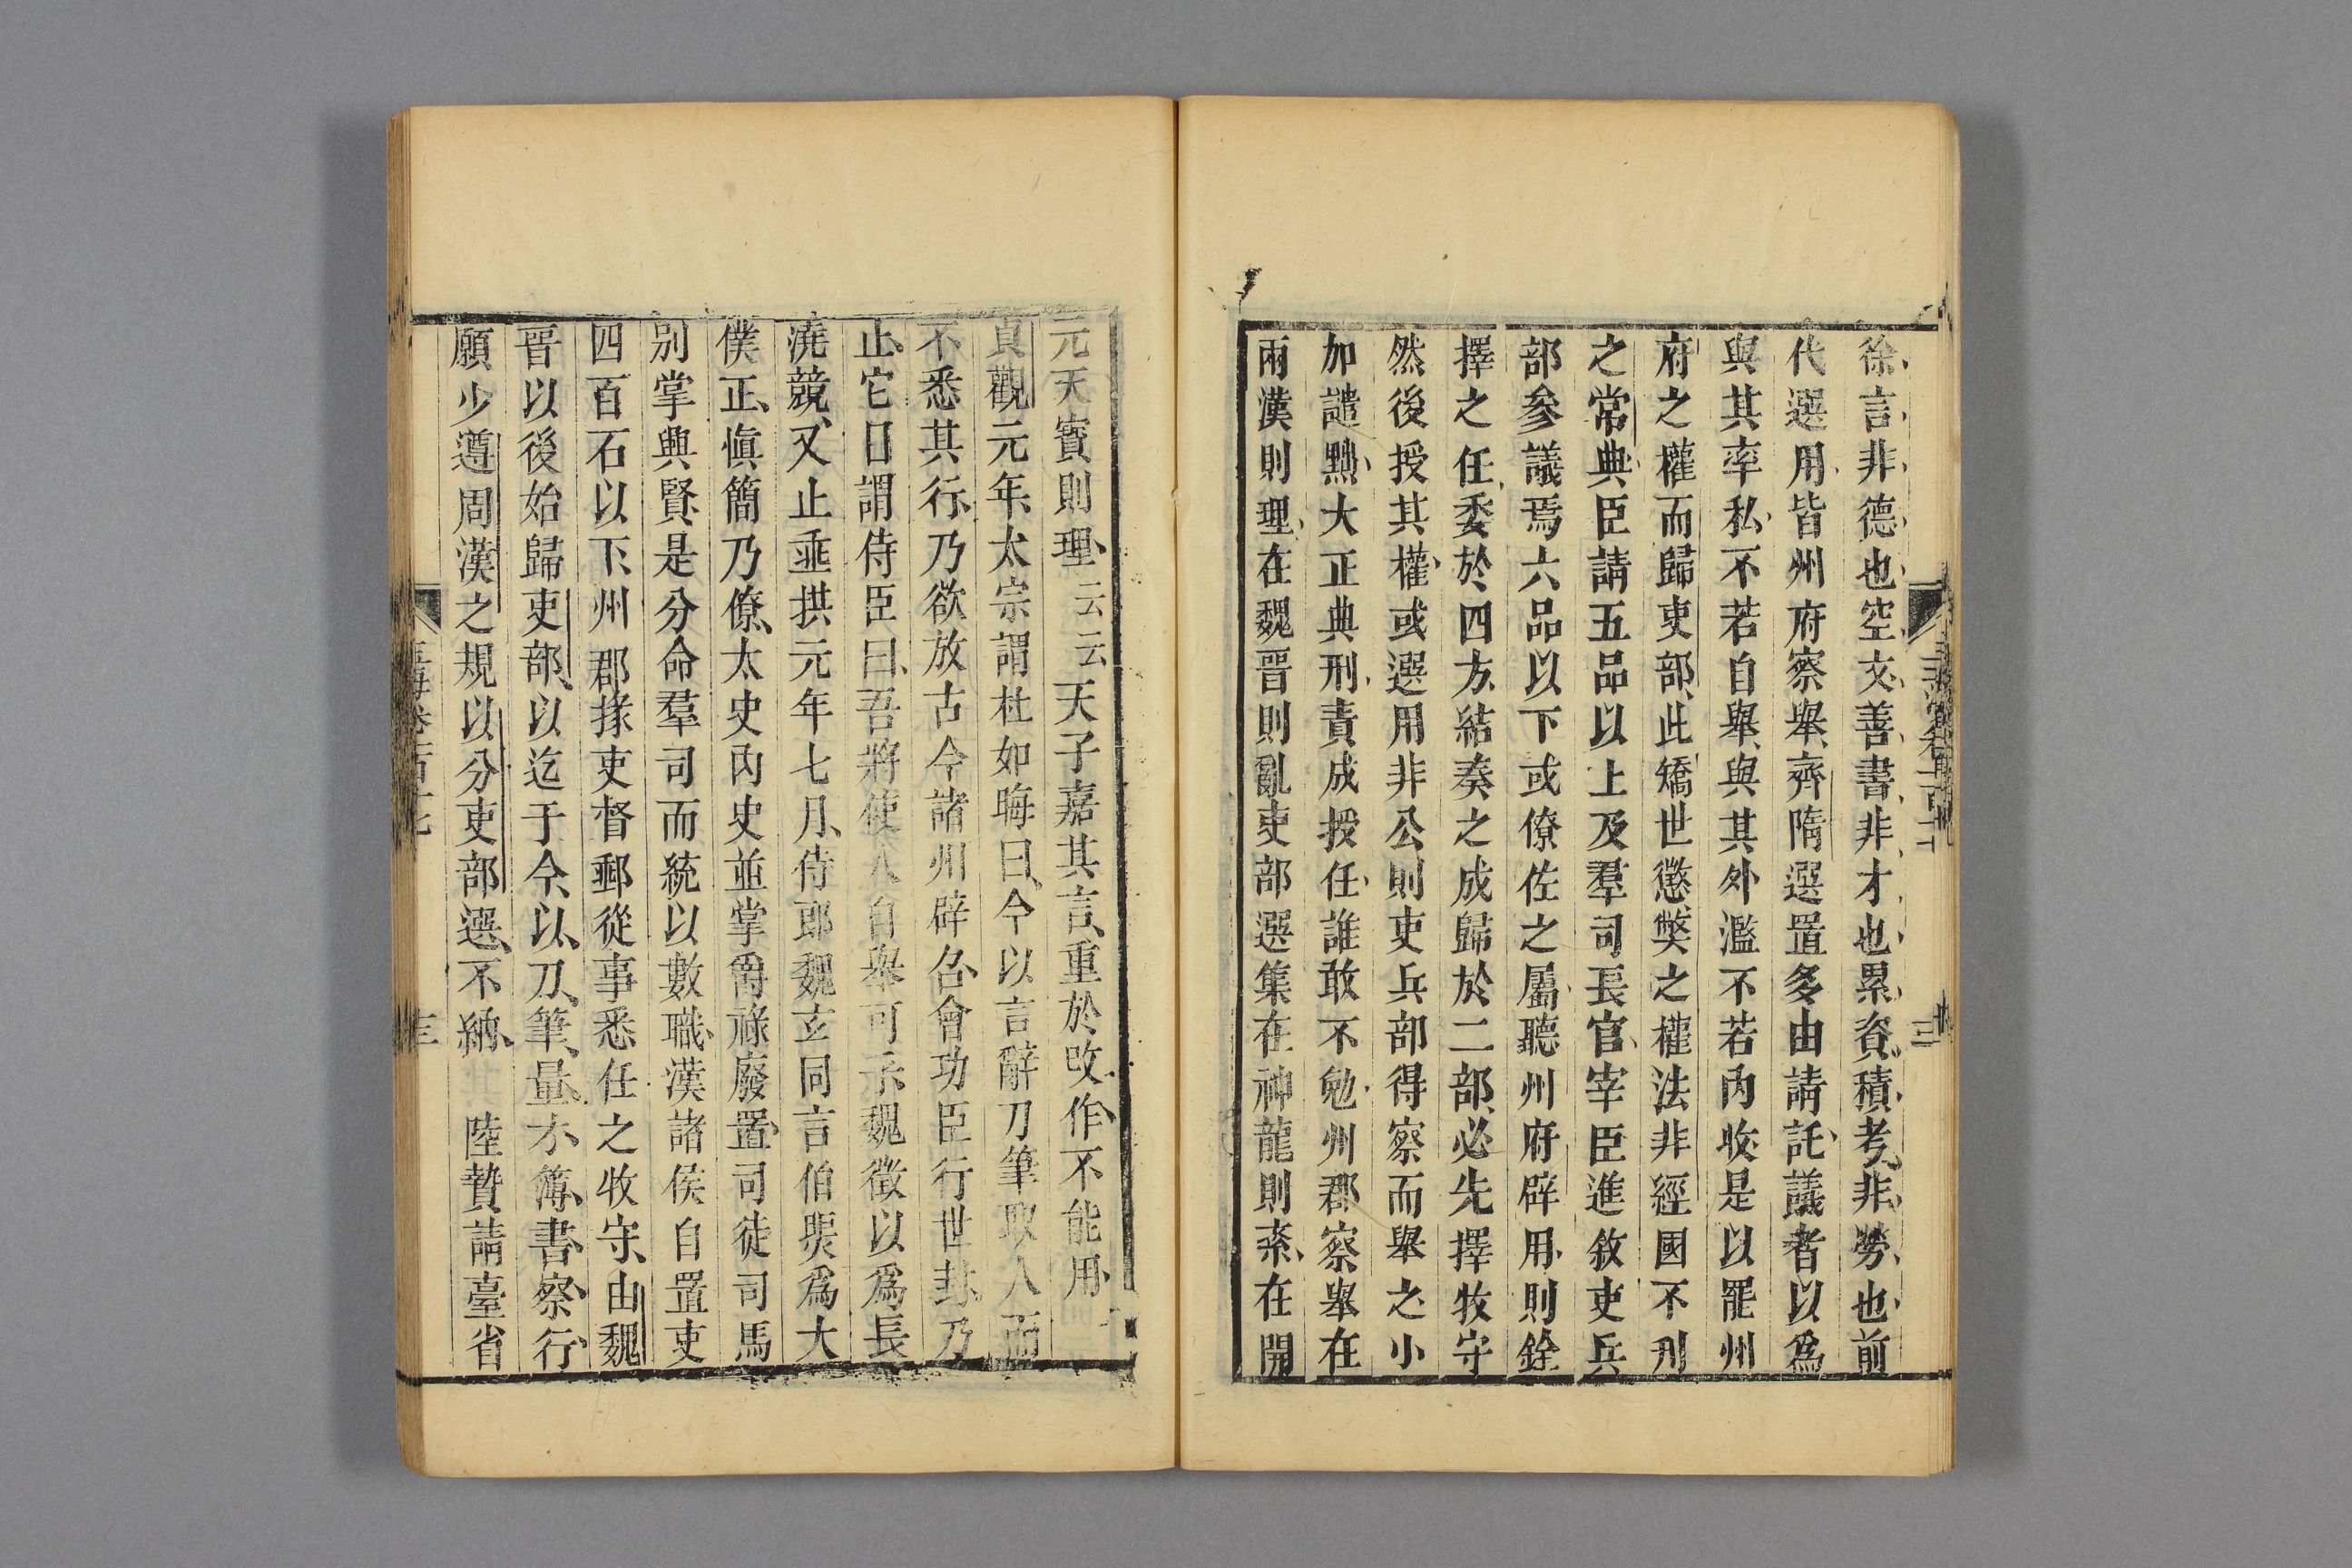 徐言非德也空文善書非才也累資積考非勞也前
代選用皆州府察舉齊隋選置多由請託議者以爲
與其率私不若自舉與其外濫不若內收是以罷州
府之權而歸吏部此矯世懲獘之權法非經國不刋
之常典臣請五品以上及羣司長官宰臣進敘吏兵
部參議焉六品以下或僚佐之屬聽州府辟用則銓
擇之任委於四方結奏之成歸於二部必先擇牧守
然後授其權或選用非公則吏兵部得察而舉之小
加譴黜大正典刑責成授任誰敢不勉州郡察舉在
兩漢則理在魏晉則亂吏部選集在神龍則紊在開
元天寳則理云云天子嘉其言重於改作不能用
貞觀元年太宗謂杜如晦曰今以言辭刀筆取人而
不悉其行乃欲放古今諸州辟召會功臣行世封乃
止它日謂侍臣曰吾將使人自舉可乎魏徵以爲長
澆競又止垂拱元年七月侍郎魏玄同言伯煚爲大
僕正愼簡乃僚太史內史並掌爵祿廢置司徒司馬
別掌興賢是分命羣司而統以數職漢諸侯自置吏
四百石以下州郡掾吏督郵從事悉任之牧守由魏
晉以後始歸吏部以迄于今以刀筆量才簿書察行
願少遵周漢之規以分吏部選不納 陸贄請臺省